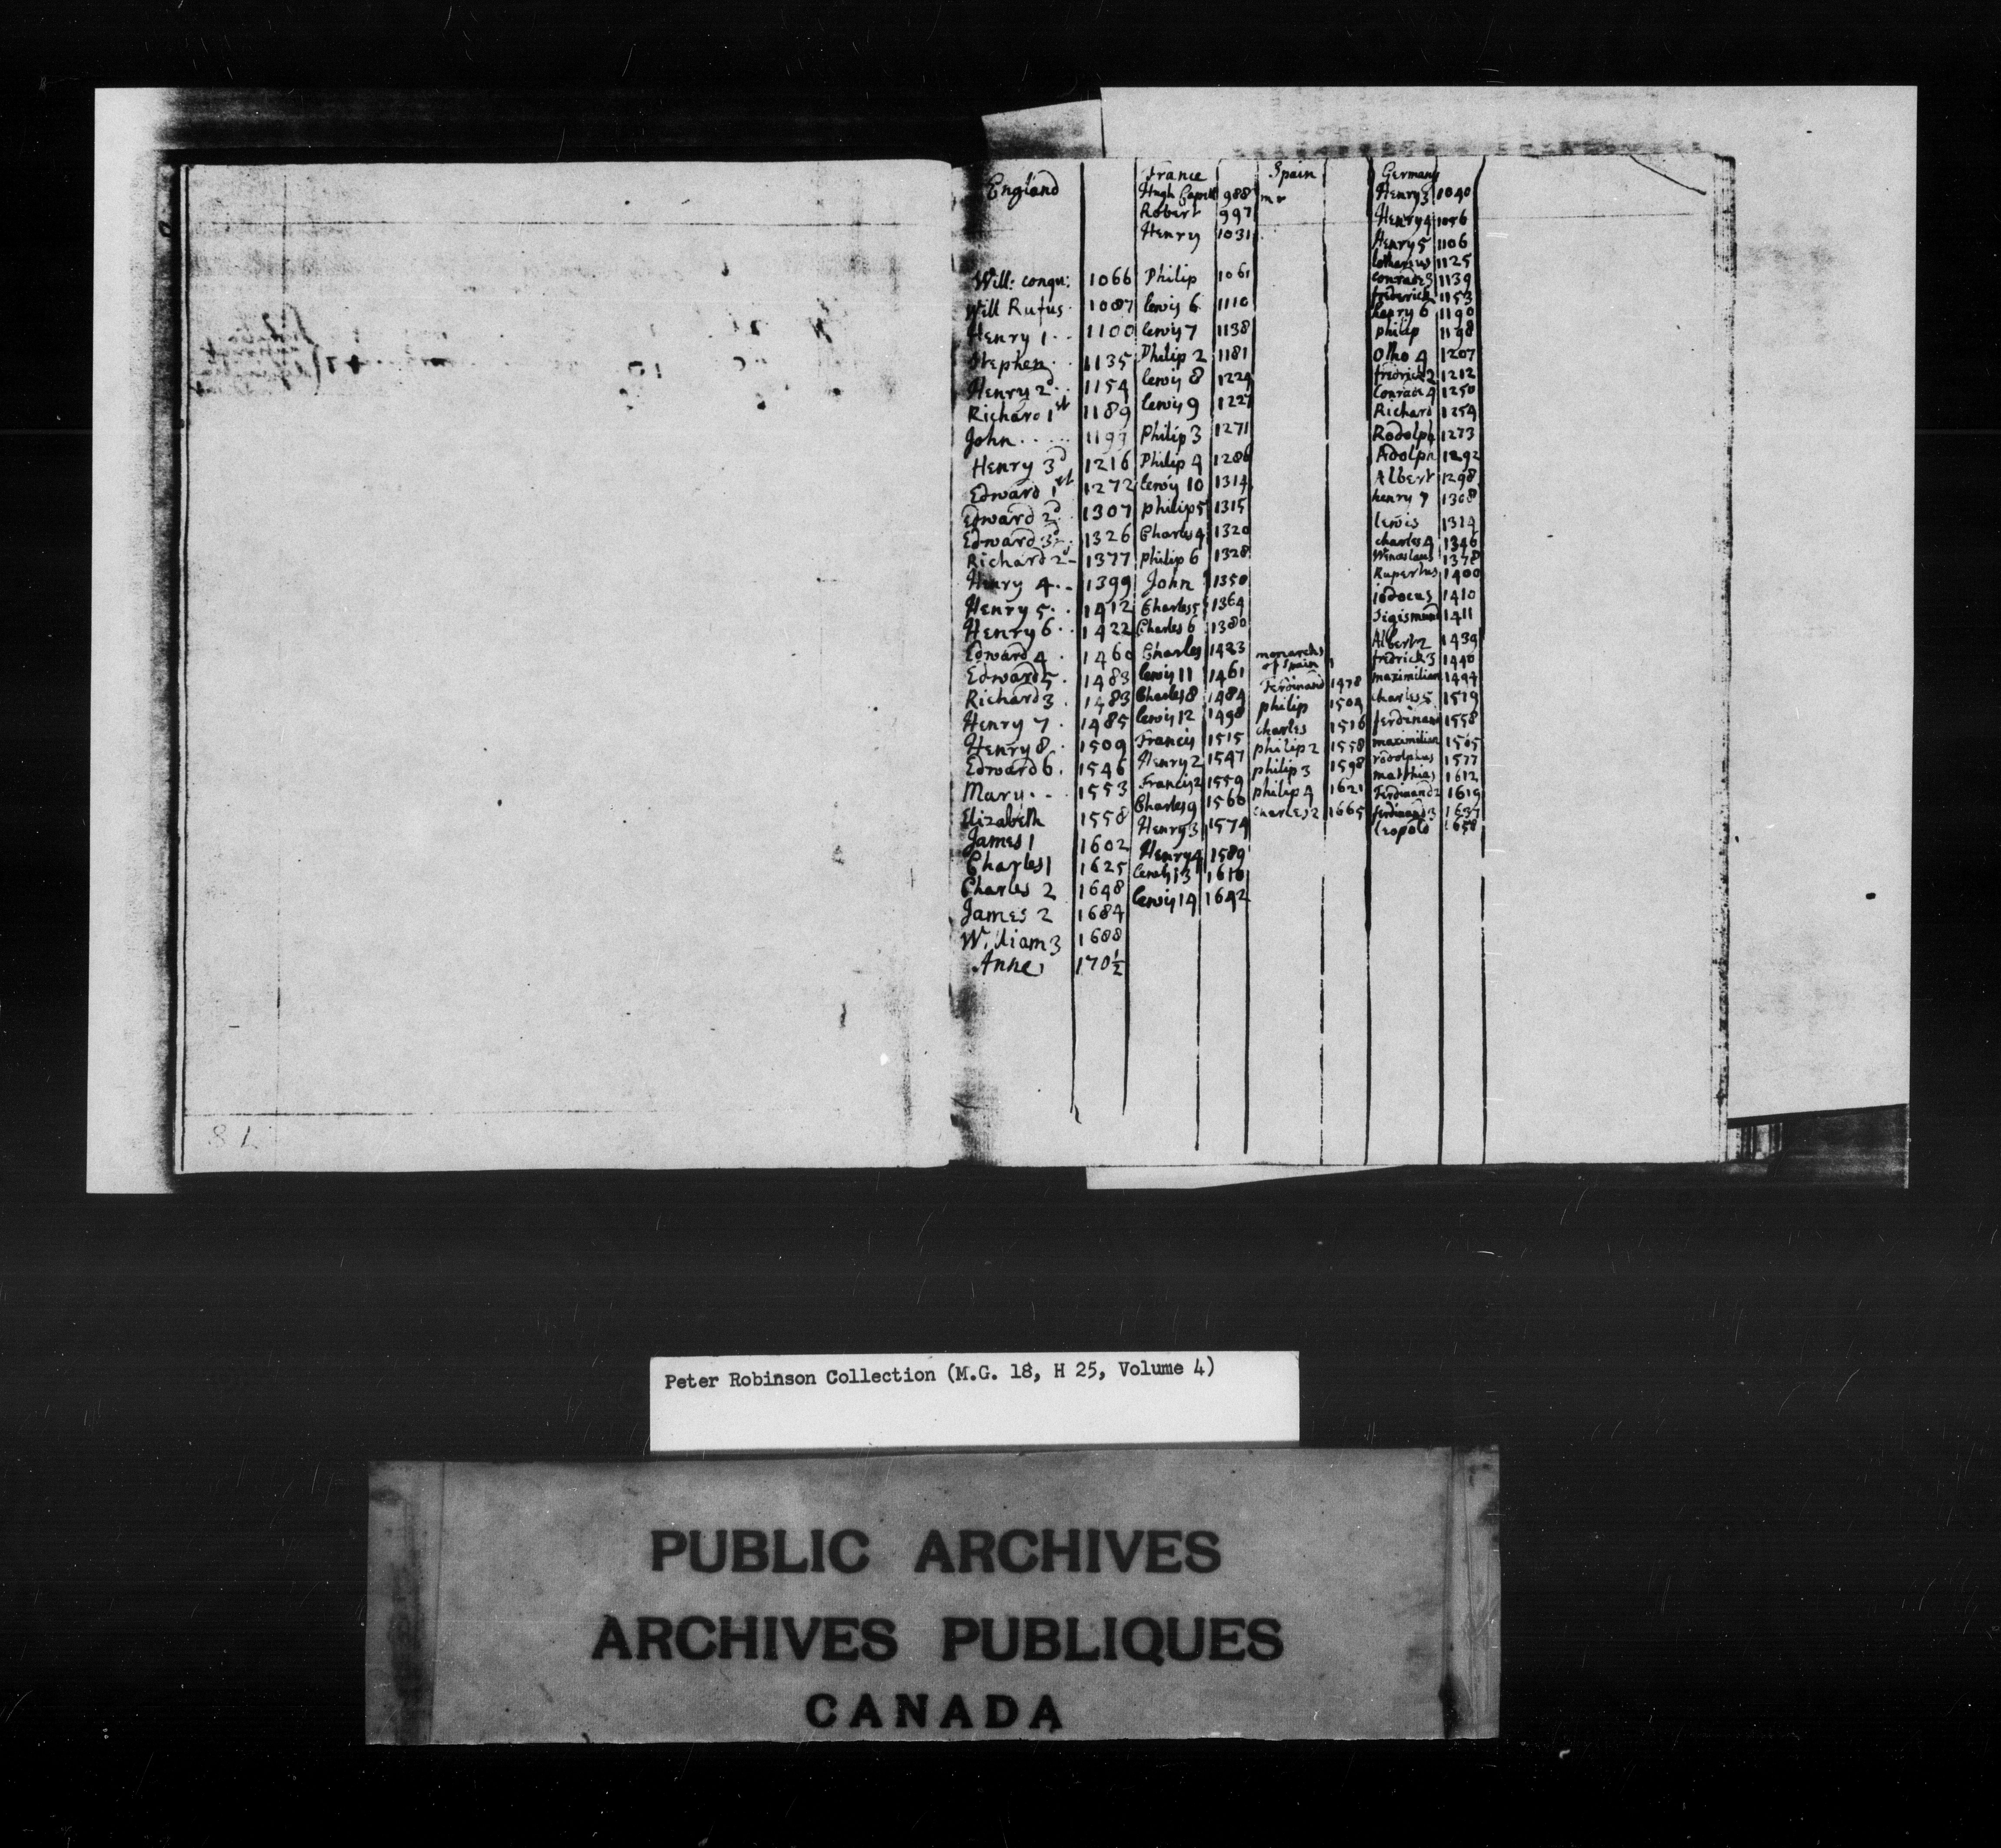 England
Will: conqu: 1066
Will Rufus 1087
Henry 1 1100
Stephen 1135
Henry 2d 1154
Richard 1st 1189
John 1199
Henry 3d 1216
Edward 1st 1272
Edward 2d 1307
Edward 3d 1326
Richard 2d 1377
Henry 4 1399
Henry 5 1412
Henry 6 1422
Edward 4 1460
Edward 5 1483
Richard 3 1483
Henry 7 1485
Henry 8 1509
Edward 6 1546
Mary 1553
Elizabeth 1558
James 1 1602
Charles 1 1625
Charles 2 1648
James 2 1684
William 3 1688
Anne 170½
France
Hugh Capett 988
Robert 997
Henry 1031
Philip 1061
lewis 6 1110
lewis 7 1138
Philip 2 1181
lewis 8 1224
lewis 9 1227
Philip 3 1271
Philip 4 1286
lewis 10 1314
philip 5 1315
Charles 4 1320
Philip 6 1328
John 1350
Charles 5 1364
Charles 6 1380
Charles 1423
lewis 11 1461
Charles 8 1484
lewis 12 1498
Francis 1515
Henry 2 1547
Francis 2 1559
Charles 9 1560
Henry 3 1574
Henry 4 1589
lewis 13 1610
lewis 14 1642
Spain
monarchs
of Spain
Ferdinand 1478
philip 1504
charles 1516
philip 2 1558
philip 3 1598
philip 4 1621
charles 2 1665
Germany
Henry 3 1040
Henry 4 1056
Henry 5 1106
lotharius 1125
conrade 3 1139
frederick 1153
henry 6 1190
philip 1198
Otho 4 1207
fredrick 2 1212
Conrade 4 1250
Richard 1254
Rodolph 1273
Adolph 1292
Albert 1298
henry 7 1308
lewis 1314
charles 4 1346
Wenceslaus 1378
Rupertus 1400
iodocus 1410
Sigismund 1411
Albert 2 1439
fredrick 3 1440
maximilian 1494
charles 5 1519
ferdinand 1558
maximilian 1565
rodolphus 1577
matthias 1612
Ferdinand 2 1619
ferdinand 3 1637
leopold 1658
Peter Robinson Collection (M.G. 18, H 25, Volume 4)
PUBLIC ARCHIVES
ARCHIVES PUBLIQUES
CANADA